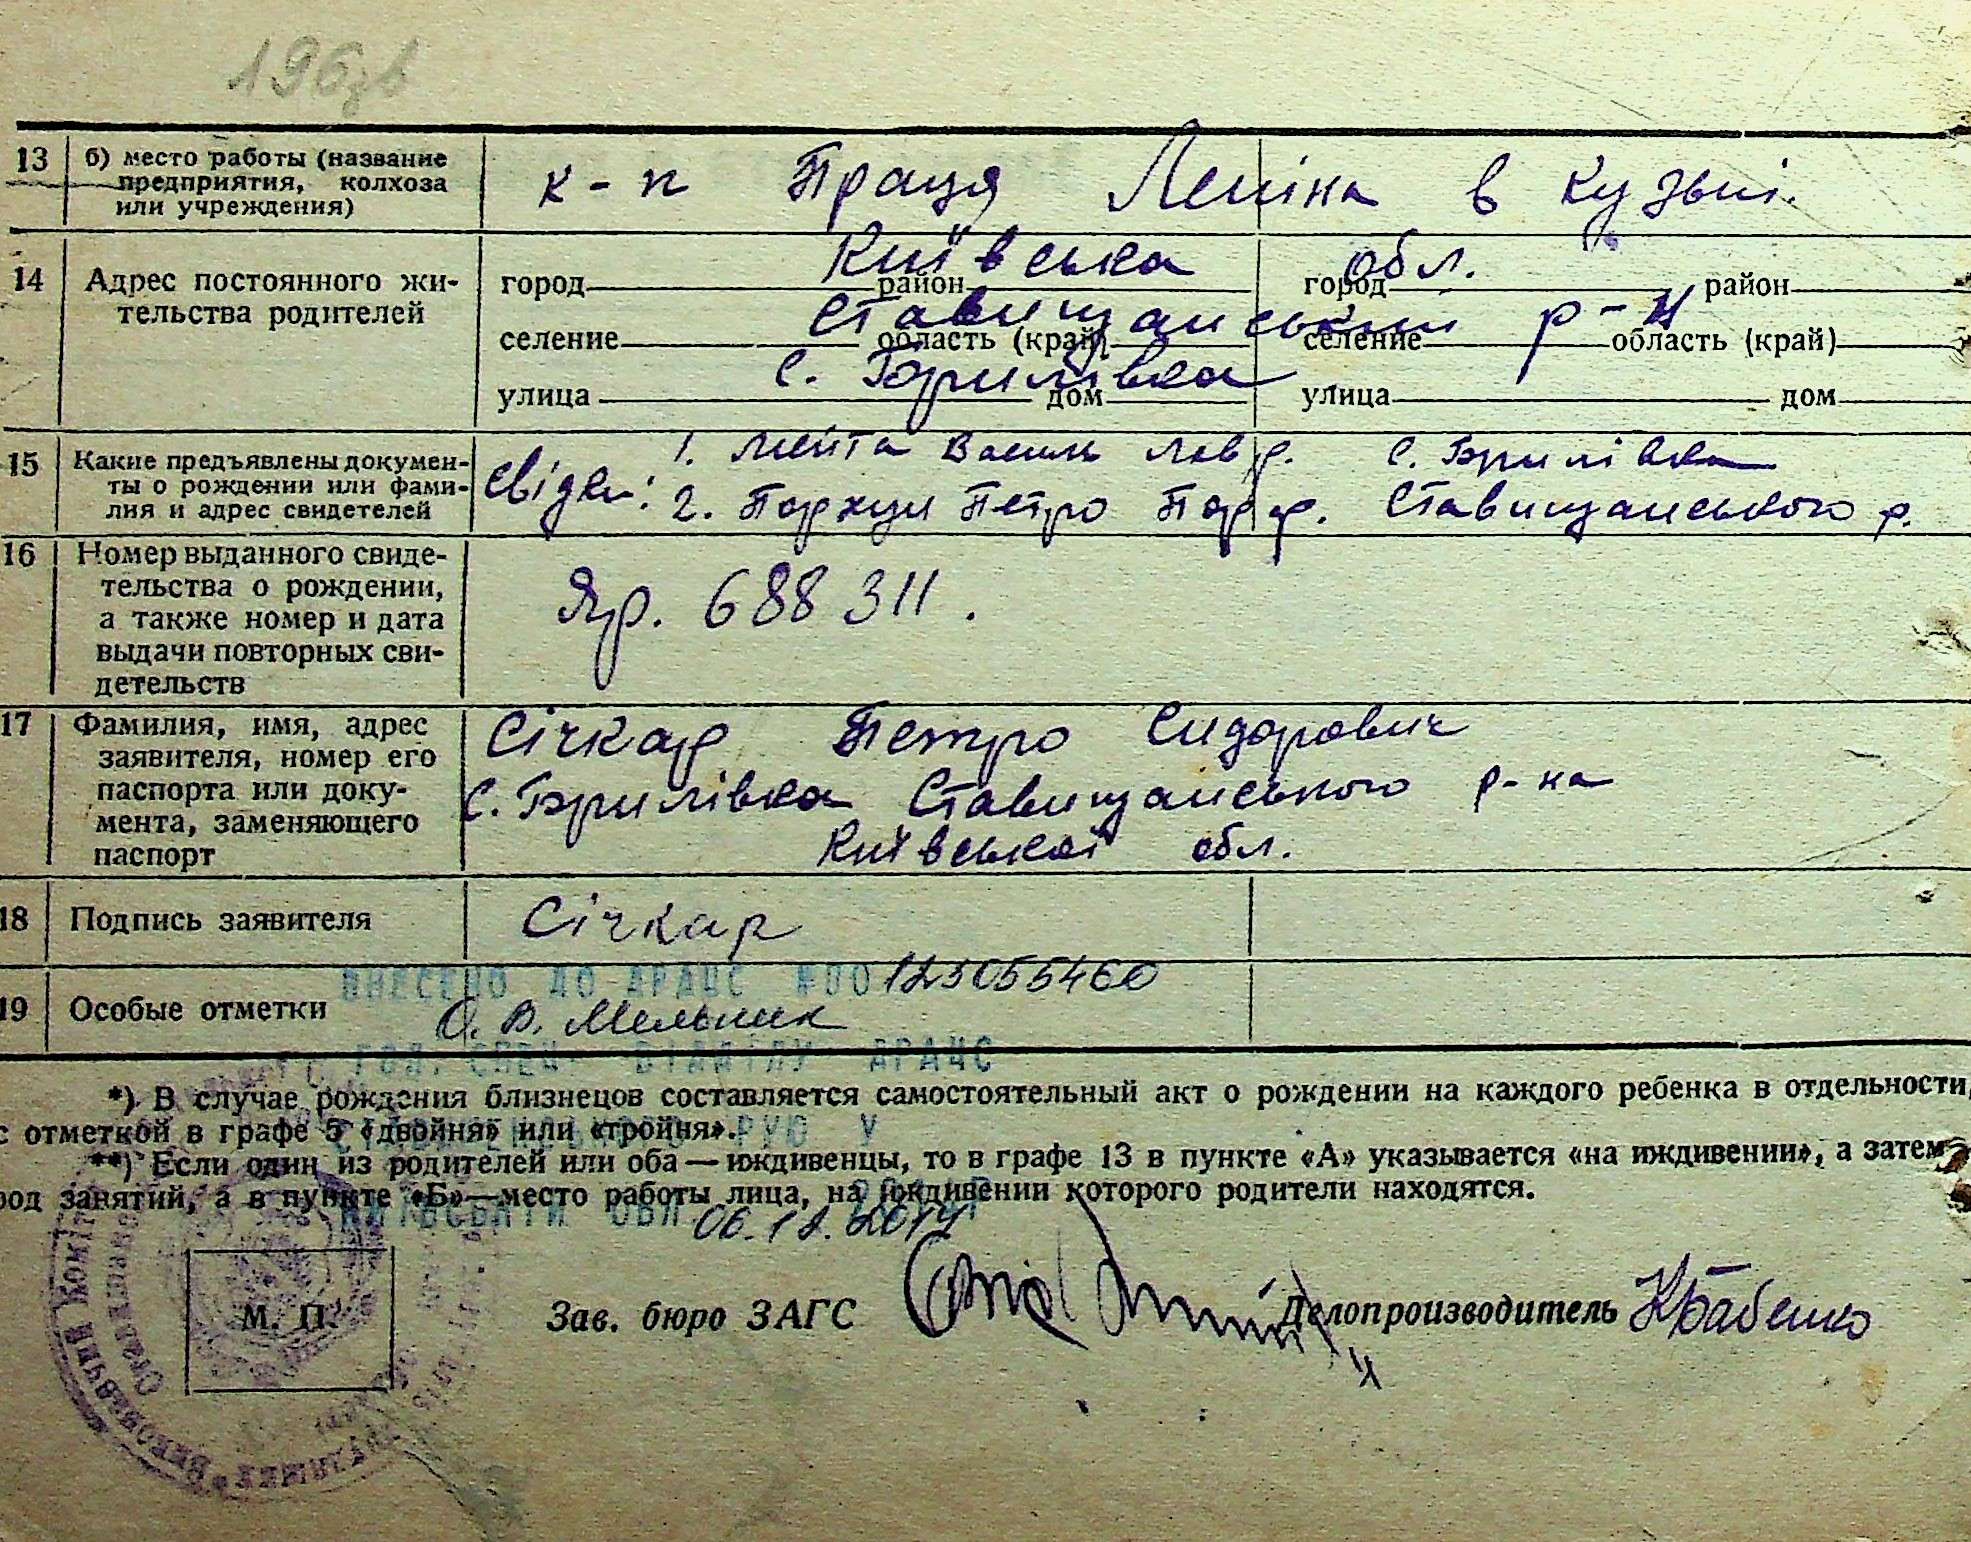 196зв
13 б) место работы (название предприятия, колхоза или учреждения) к-п Праця Леніна в кузьні.
14 Адрес постоянного жительства родителей
Київська обл.
город район город район
Ставищанський р-н
селение область (край) селение область (край)
с. Брилівка
улица дом улица дом
15 Какие предъявлены документы о рождении или фамилия и адрес свидетелей
Свідки: 1. Василь Лавр. с. Брилівка
2. Петро Ставищанського р.
16 Номер выданного свидетельства о рождении, а также номер и дата выдачи повторных свидетельств
Яр. 688311.
17 Фамилия, имя, адрес заявителя, номер его паспорта или документа, заменяющего паспорт
Січкар Петро Сидорович
с. Брилівка Ставищанського р-на
Київської обл.
18 Подпись заявителя Січкар
ВНЕСЕНО ДО ДРАЦС №00123055460
19 Особые отметки О. В. Мельник
ГОЛ. СПЕЦ. ВІДДІЛУ ДРАЦС
*) В случае рождения близнецов составляется самостоятельный акт о рождении на каждого ребенка в отдельности,
с отметкой в графе 5 «двойня» или «тройня».
РУЮ У
**) Если один из родителей или оба — иждивенцы, то в графе 13 в пункте «А» указывается «на иждивении», а затем
род занятий, а в пункте «Б»—место работы лица, на иждивении которого родители находятся.
КИЇВСЬКІЙ ОБЛ 06.12.2014
М. П. Зав. бюро ЗАГС Делопроизводитель КБабенко